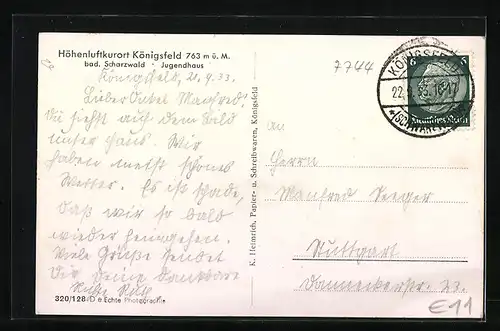 Höhenluftkurort Königsfeld 763 m ü. M.
bad. Scharzwald · Jugendhaus
Königsfeld, 21.9.33.
Lieber Onkel Manfred,
Du siehst auf dem Bild
unser Haus. Wir
haben meist schönes
Wetter. Es ist schade,
daß wir so bald
wieder heimgehen.
Viele Grüße sendet
Dir Deine dankbare
Ruth
320/128/D e Echte Photographie
K. Heinrich, Papier- u. Schreibwaren, Königsfeld
7744
KÖNIGSFELD
22. 33.16-17
(SCHWARZW
6 6
Deutsches Reich
an
Herrn
Manfred Seeger
Stuttgart
Danneckerstr. 23.
E11